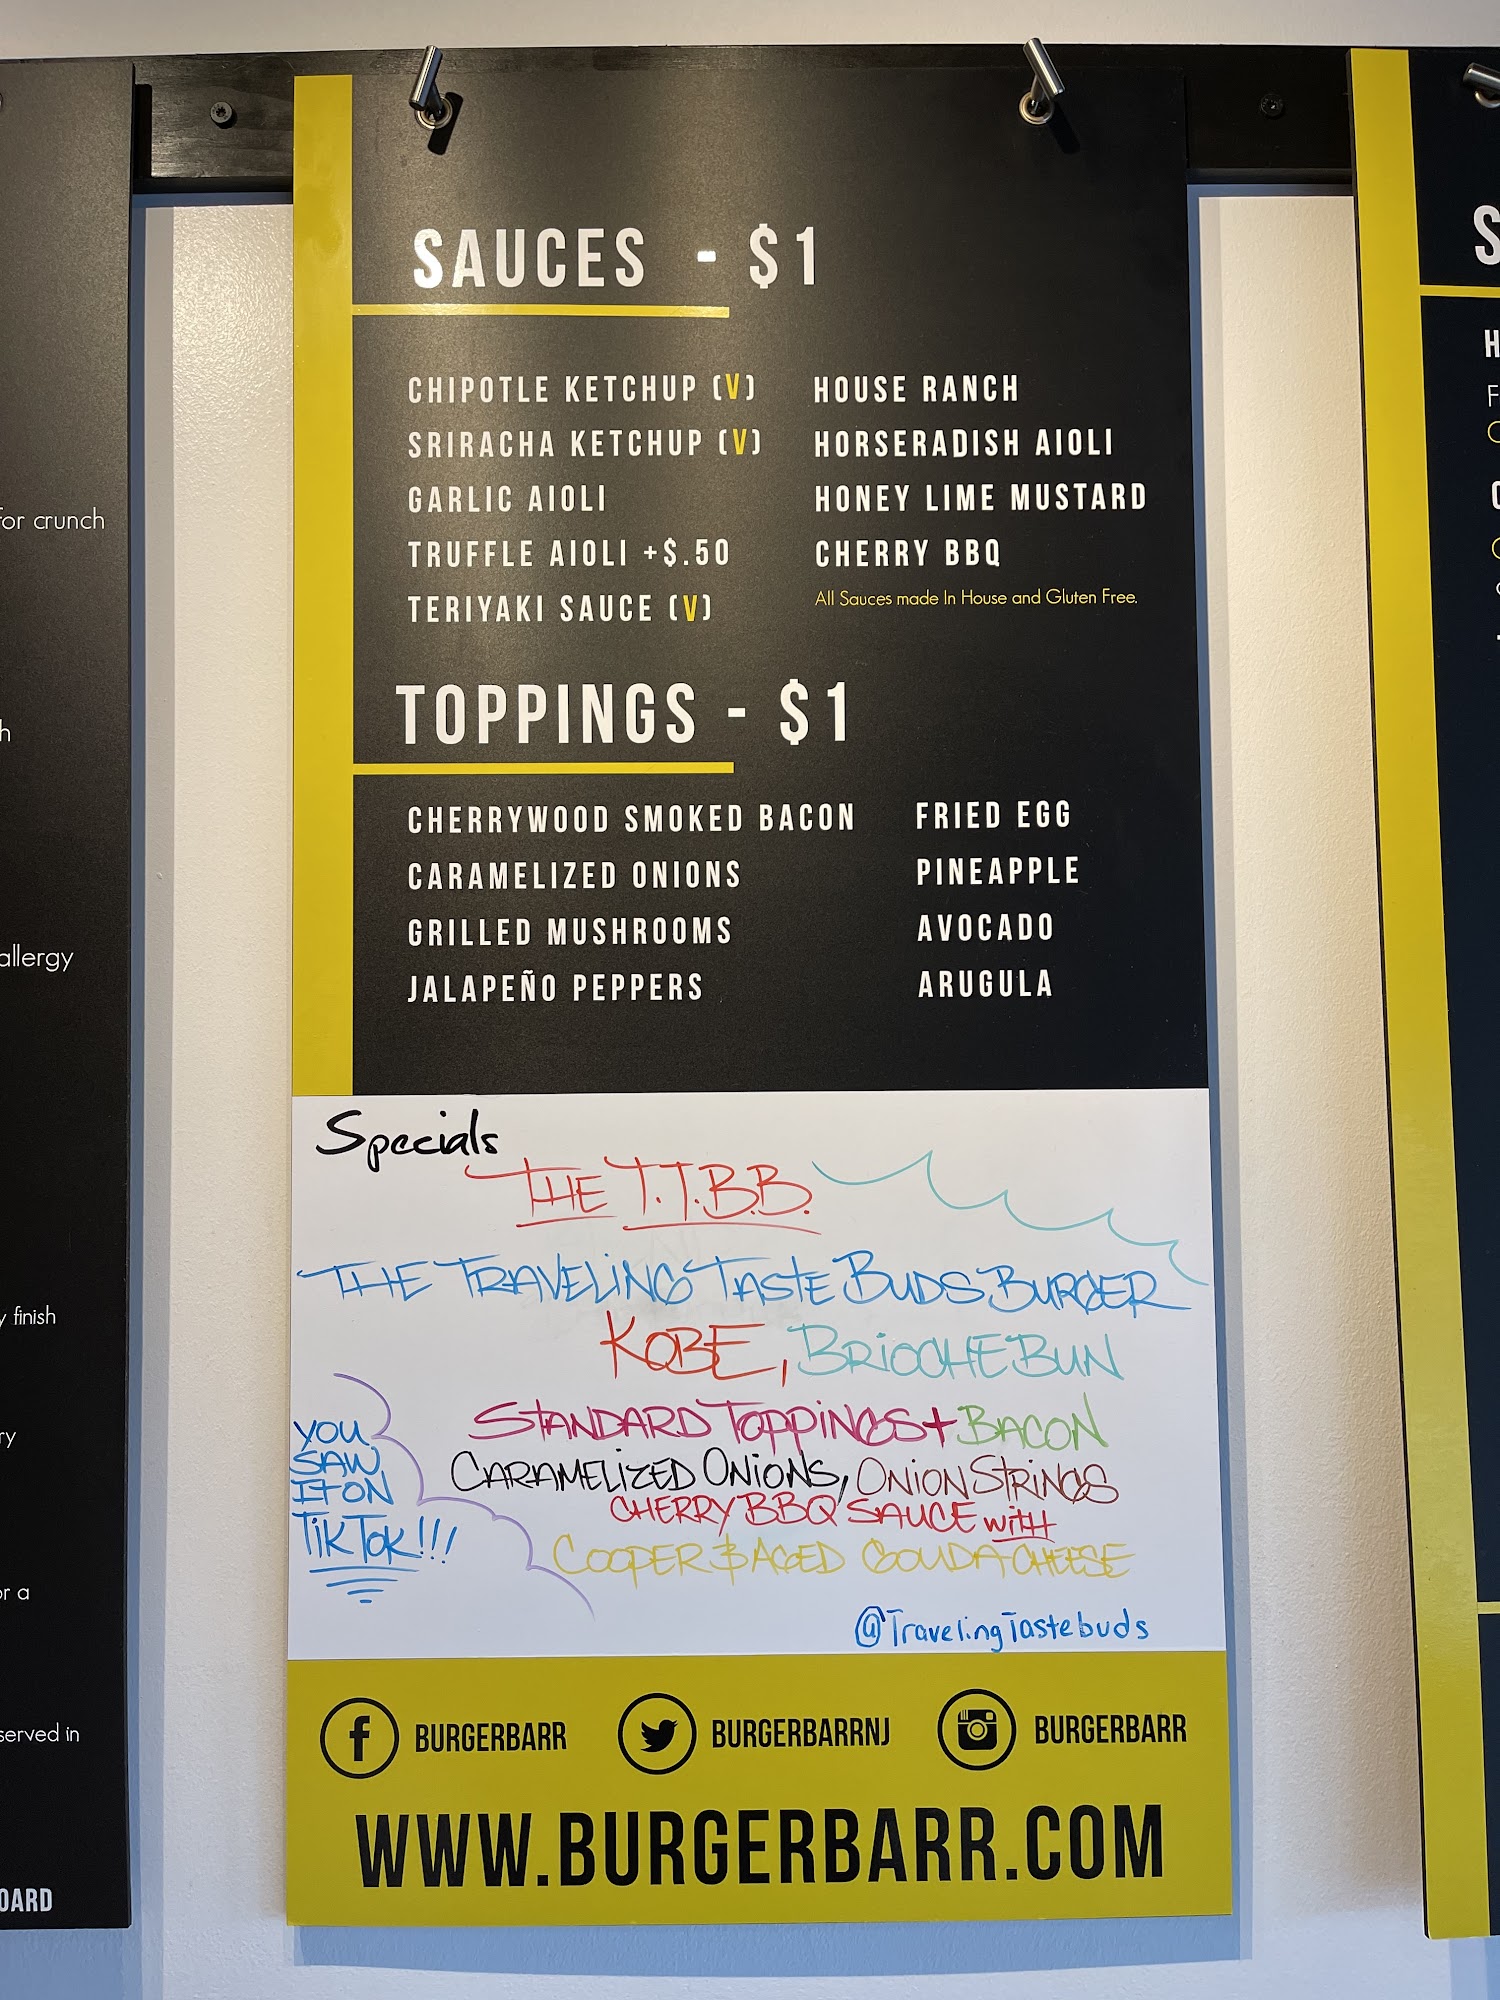 SAUCES - $1
CHIPOTLE KETCHUP (V)
SRIRACHA KETCHUP (V)
GARLIC AIOLI
TRUFFLE AIOLI +$.50
TERIYAKI SAUCE (V)
HOUSE RANCH
HORSERADISH AIOLI
HONEY LIME MUSTARD
CHERRY BBQ
All Sauces made In House and Gluten Free.
TOPPINGS - $1
CHERRYWOOD SMOKED BACON
CARAMELIZED ONIONS
GRILLED MUSHROOMS
JALAPEÑO PEPPERS
FRIED EGG
PINEAPPLE
AVOCADO
ARUGULA
Specials
THE T.T.B.B.
THE TRAVELING TASTE BUDS BURGER
KOBE, BRIOCHE BUN
STANDARD TOPPINGS + BACON
CARAMELIZED ONIONS, ONION STRINGS
CHERRY BBQ SAUCE with
COOPER & AGED GOUDA CHEESE
YOU
SAW
IT ON
TIK TOK!!!
@TravelingTastebuds
BURGERBARR
BURGERBARRNJ
BURGERBARR
WWW.BURGERBARR.COM
for crunch
allergy
finish
or a
served in